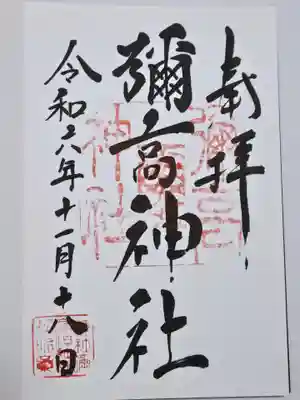 奉拝
彌高神社
令和六年十一月十八日